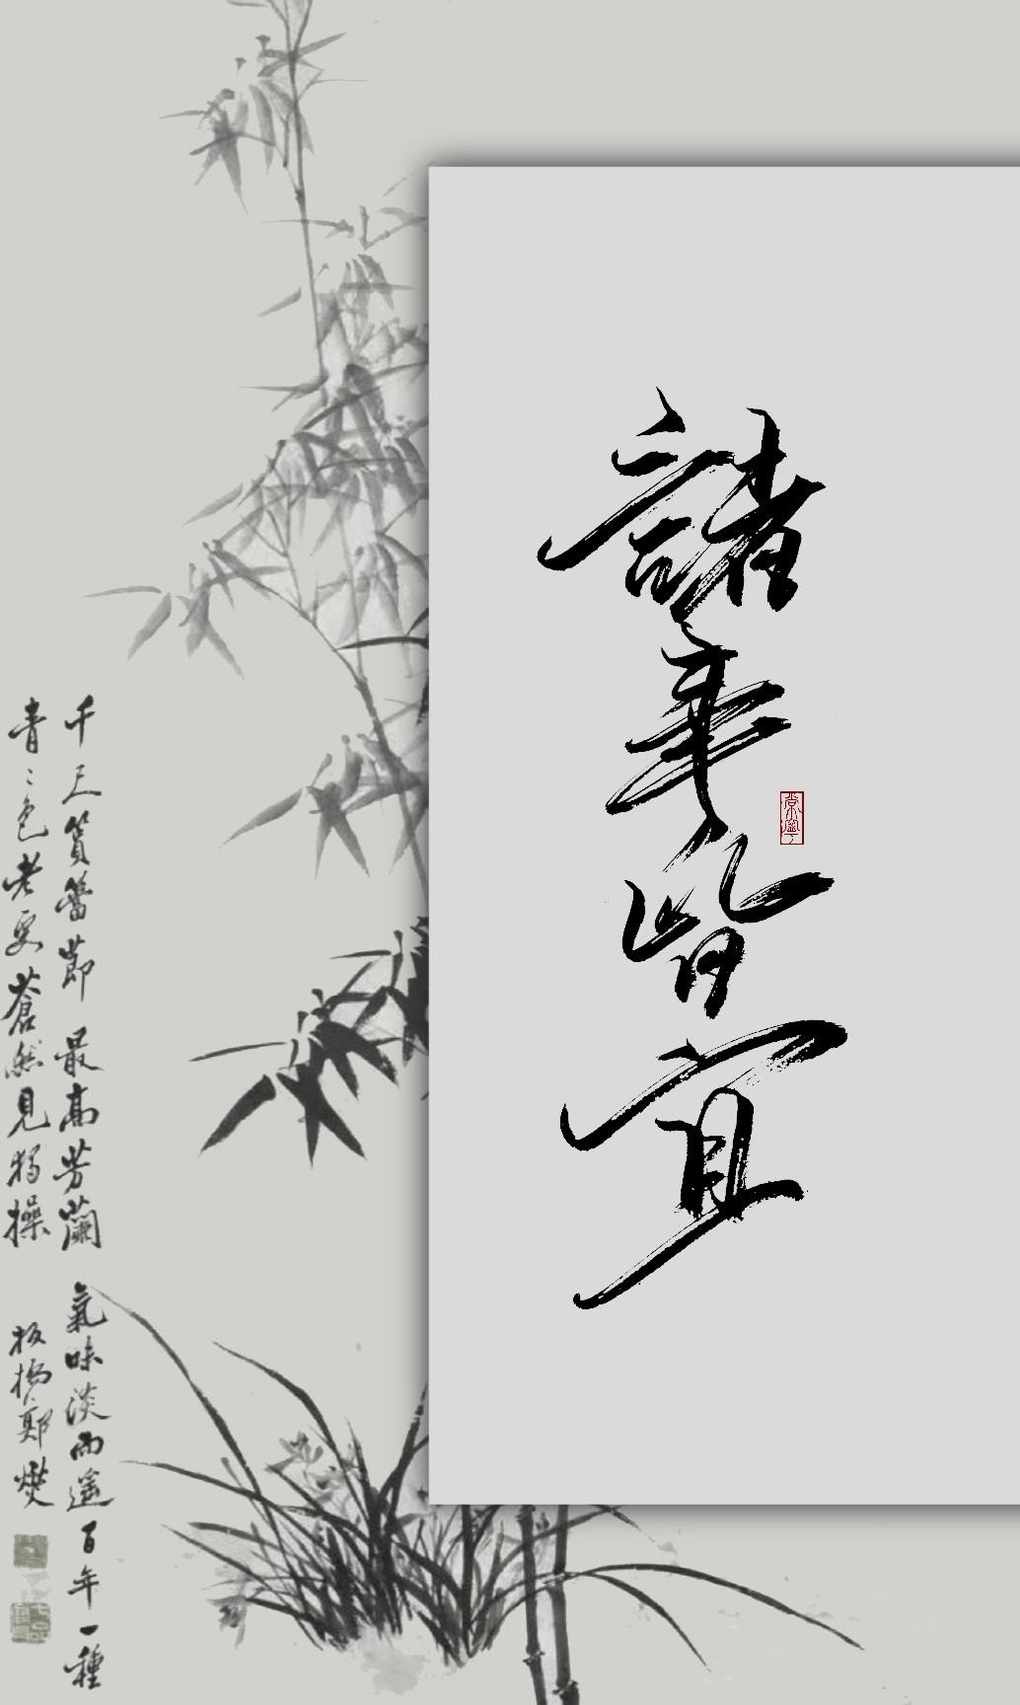 諸事皆宜
千尺篔簹節最高芳蘭氣味淡而遙百年一種
青〻色老更蒼然見獨操 板橋鄭燮